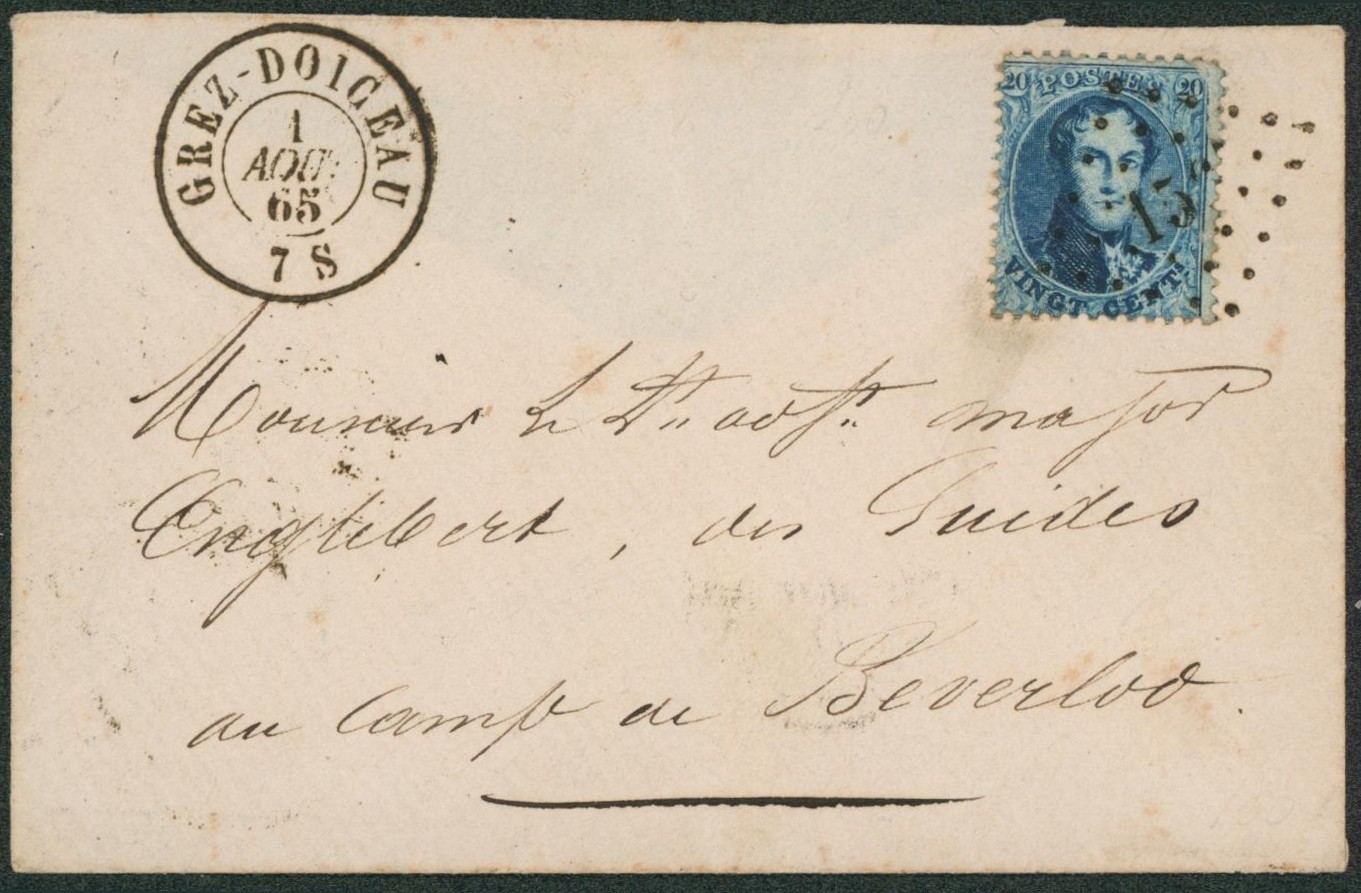 GREZ-DOICEAU
1
AOUT
65
7 S
20 POSTES 20
15
VINGT CENTS
Monsieur Le Lt adjt major
Englebert, des Guides
au Camp de Beverloo.